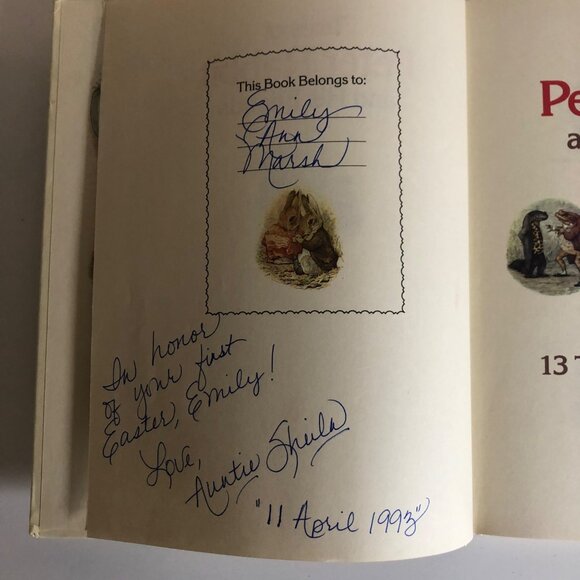 This Book Belongs to:
Emily
Ann
Marsh
In honor
of your first
Easter, Emily!
Love,
Auntie Sheila
"11 April 1993"
Pe
a
13 T